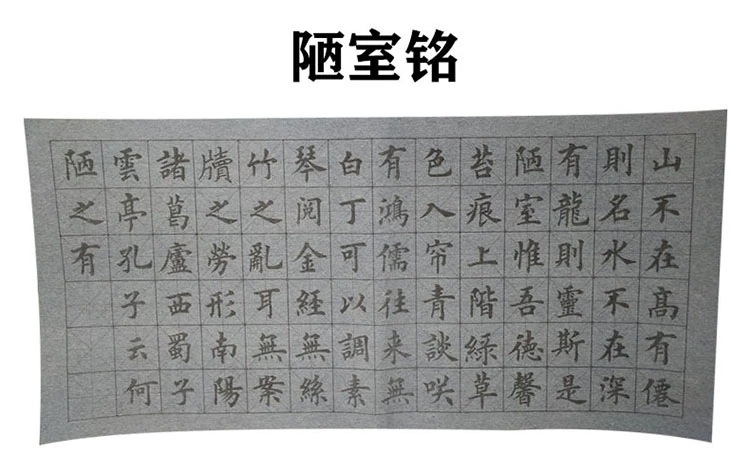 陋室铭
山不在高有僊
則名水不在深
有龍則靈斯是
陋室惟吾德馨
苔痕上階緑草
色入帘青談咲
有鴻儒往来無
白丁可以調素
琴閲金經無絲
竹之亂耳無案
牘之勞形南陽
諸葛廬西蜀子
雲亭孔子云何
陋之有